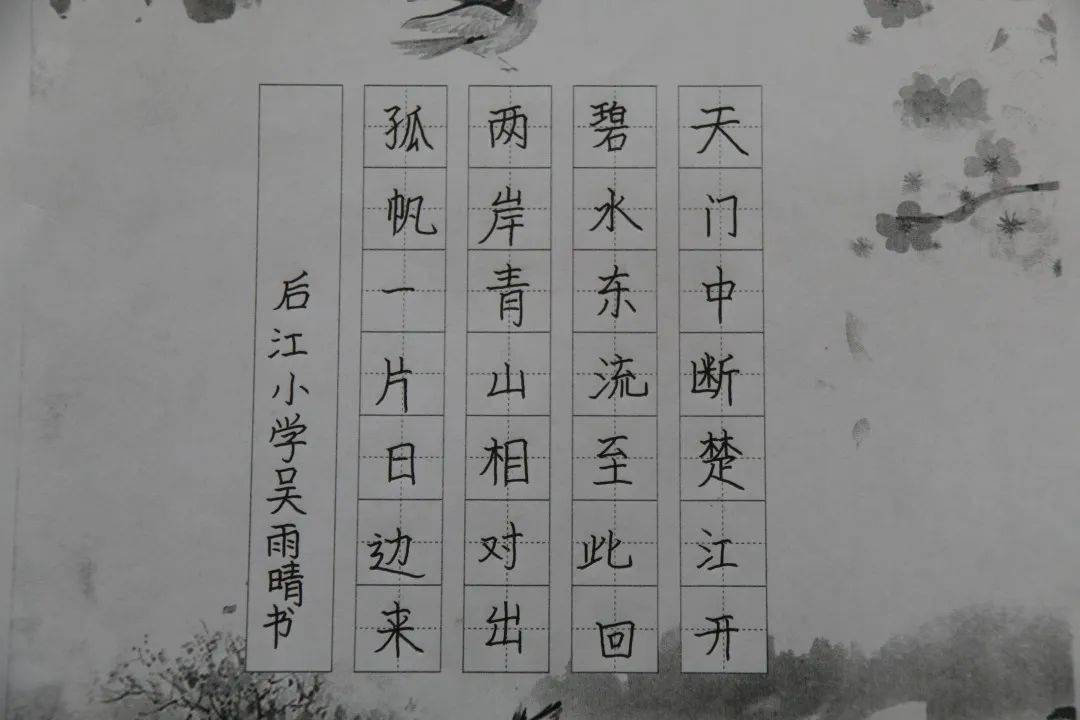 天门中断楚江开
碧水东流至此回
两岸青山相对出
孤帆一片日边来
后江小学吴雨晴书